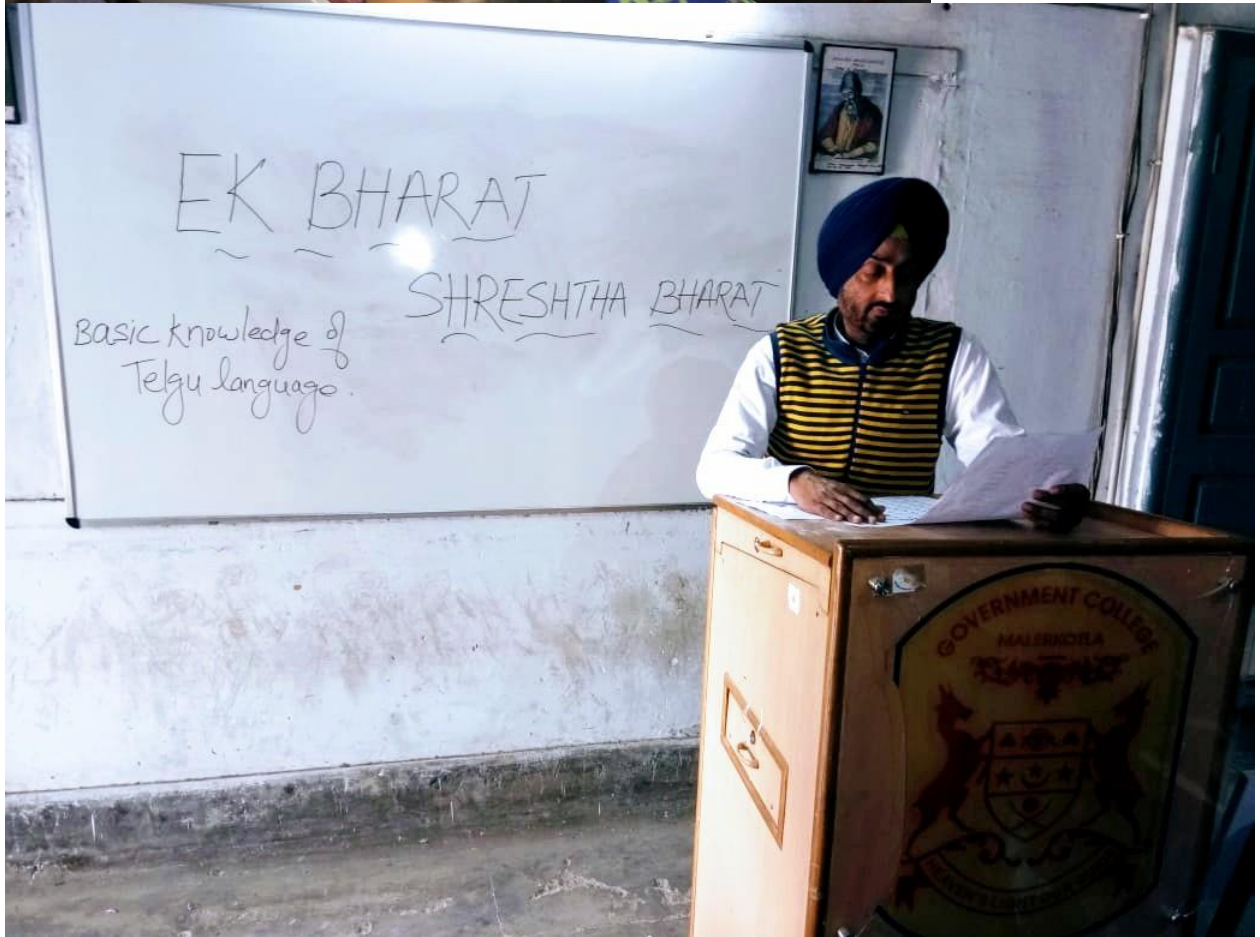 EK BHARAT
SHRESHTHA BHARAT
Basic knowledge of
Telgu language.
GOVERNMENT COLLEGE
MALERKOTLA